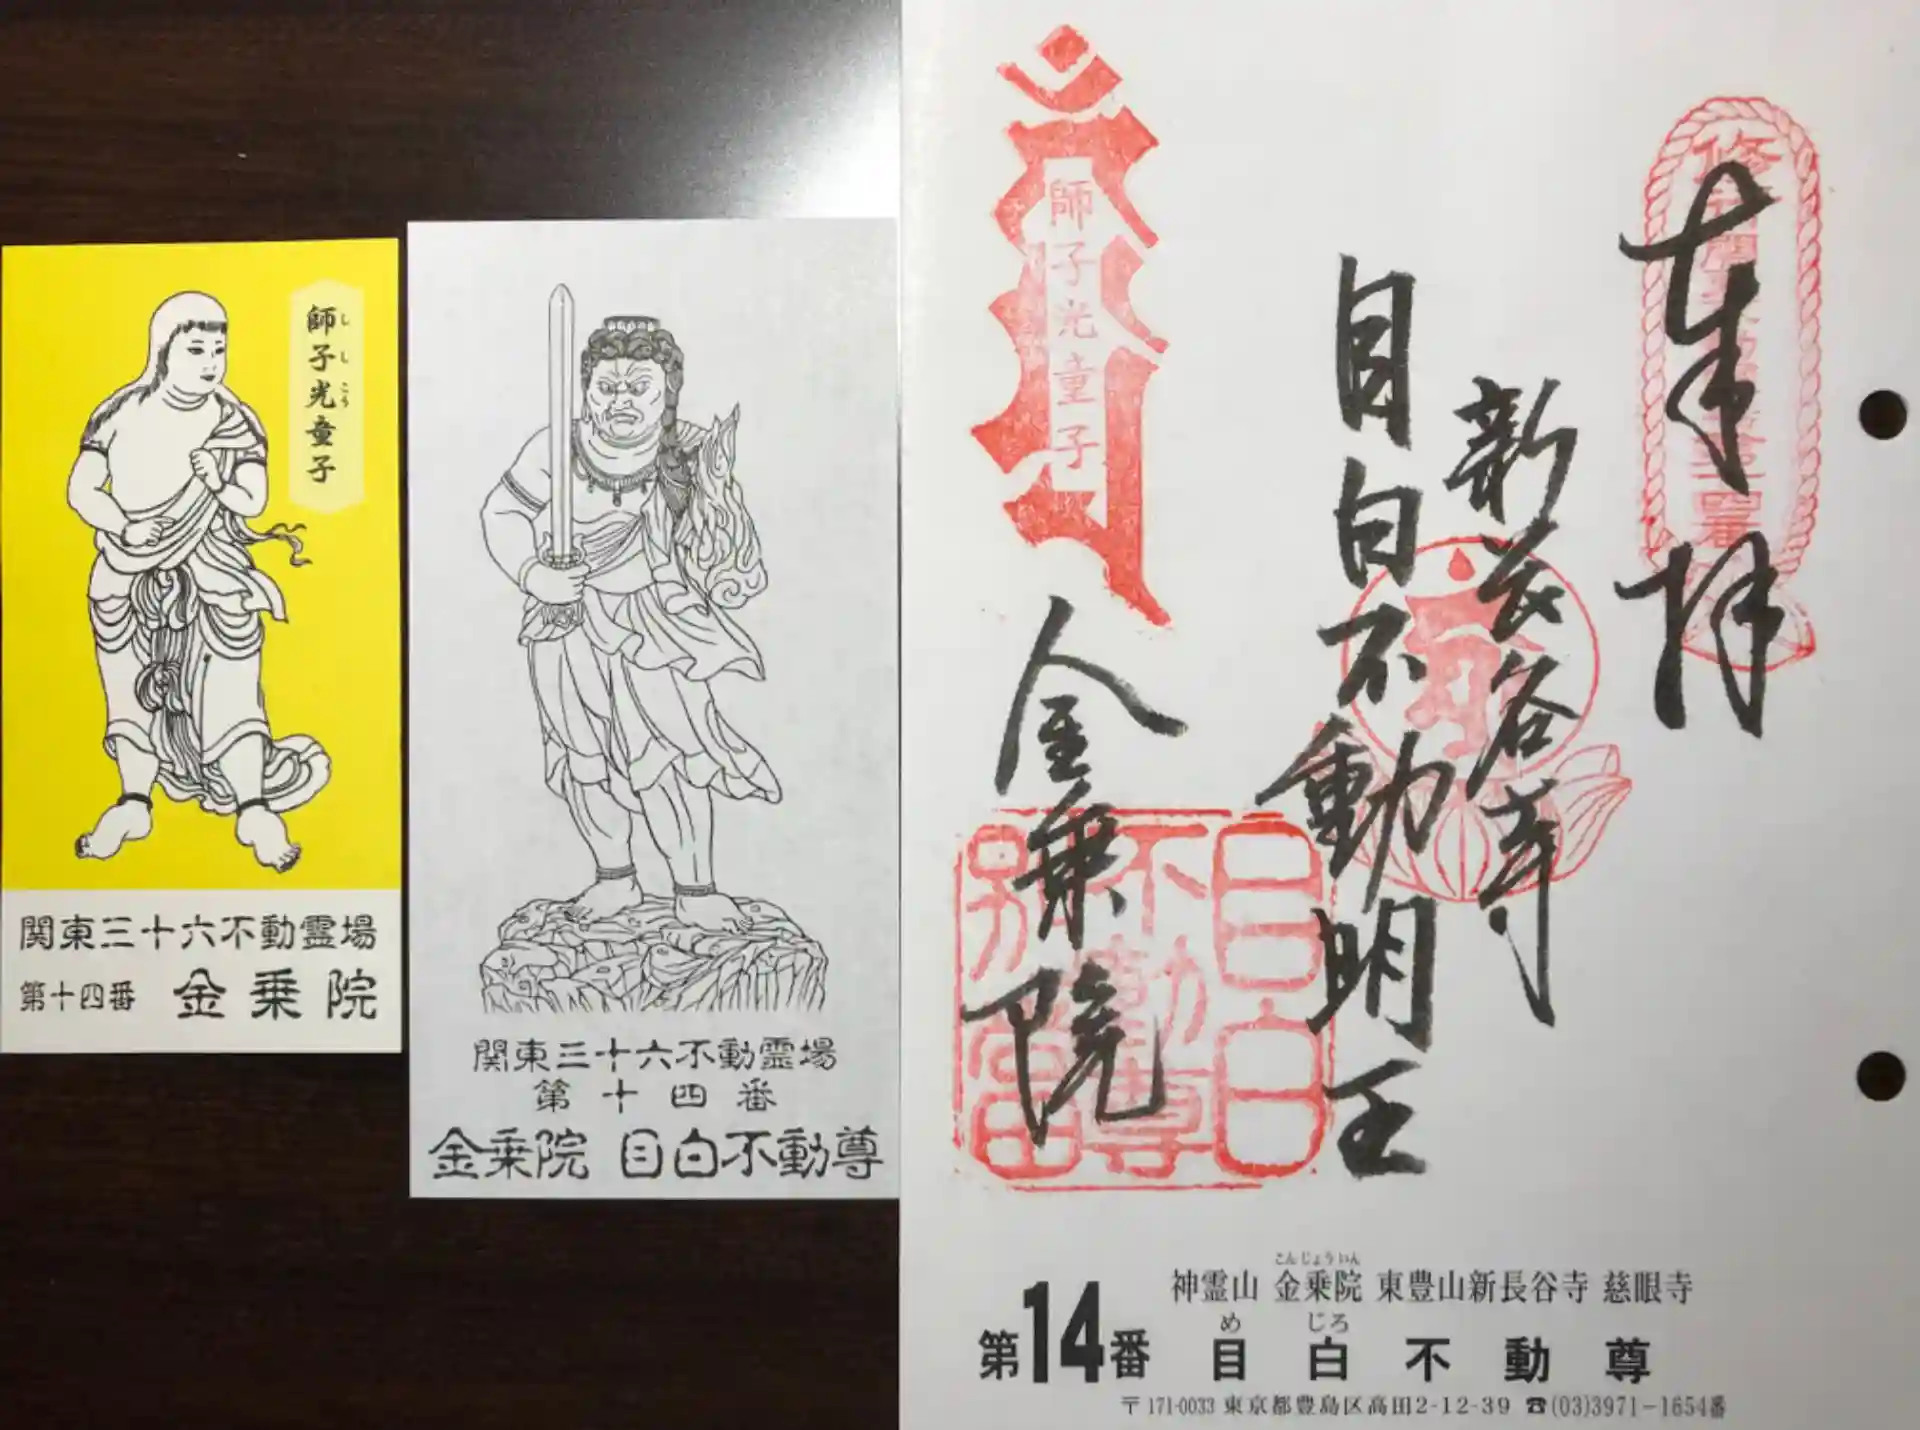 師子光童子
し し こう
関東三十六不動霊場
第十四番 金乗院
関東三十六不動霊場
第十四番
金乗院 目白不動尊
奉拝
新長谷寺
目白不動明王
金乗院
師子光童子
目白
不動尊
別當
こんじょういん
神霊山 金乗院 東豊山新長谷寺 慈眼寺
め じろ
第14番 目白不動尊
〒171-0033 東京都豊島区高田2-12-39 ☎(03)3971-1654番